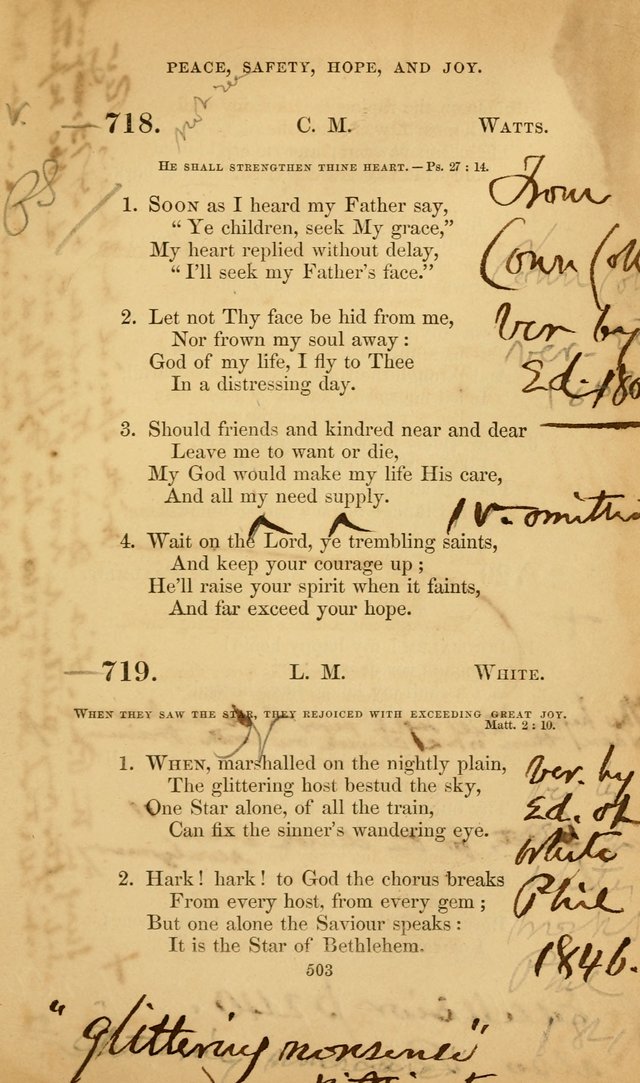 PEACE, SAFETY, HOPE, AND JOY.
718. C. M. WATTS.
HE SHALL STRENGTHEN THINE HEART. — Ps. 27 : 14.
1. SOON as I heard my Father say,
“ Ye children, seek My grace,”
My heart replied without delay,
“ I’ll seek my Father’s face.”
From
Conn Coll
Ver by
Ed. 180
2. Let not Thy face be hid from me,
Nor frown my soul away :
God of my life, I fly to Thee
In a distressing day.
3. Should friends and kindred near and dear
Leave me to want or die,
My God would make my life His care,
And all my need supply.
1 v. omitti
4. Wait on the Lord, ye trembling saints,
And keep your courage up ;
He’ll raise your spirit when it faints,
And far exceed your hope.
719. L. M. WHITE.
WHEN THEY SAW THE STAR, THEY REJOICED WITH EXCEEDING GREAT JOY.
Matt. 2 : 10.
1. WHEN, marshalled on the nightly plain,
The glittering host bestud the sky,
One Star alone, of all the train,
Can fix the sinner’s wandering eye.
Ver. by
Ed. of
White
Phil
1846.
2. Hark! hark! to God the chorus breaks
From every host, from every gem ;
But one alone the Saviour speaks :
It is the Star of Bethlehem.
503
"glittering nonsense"